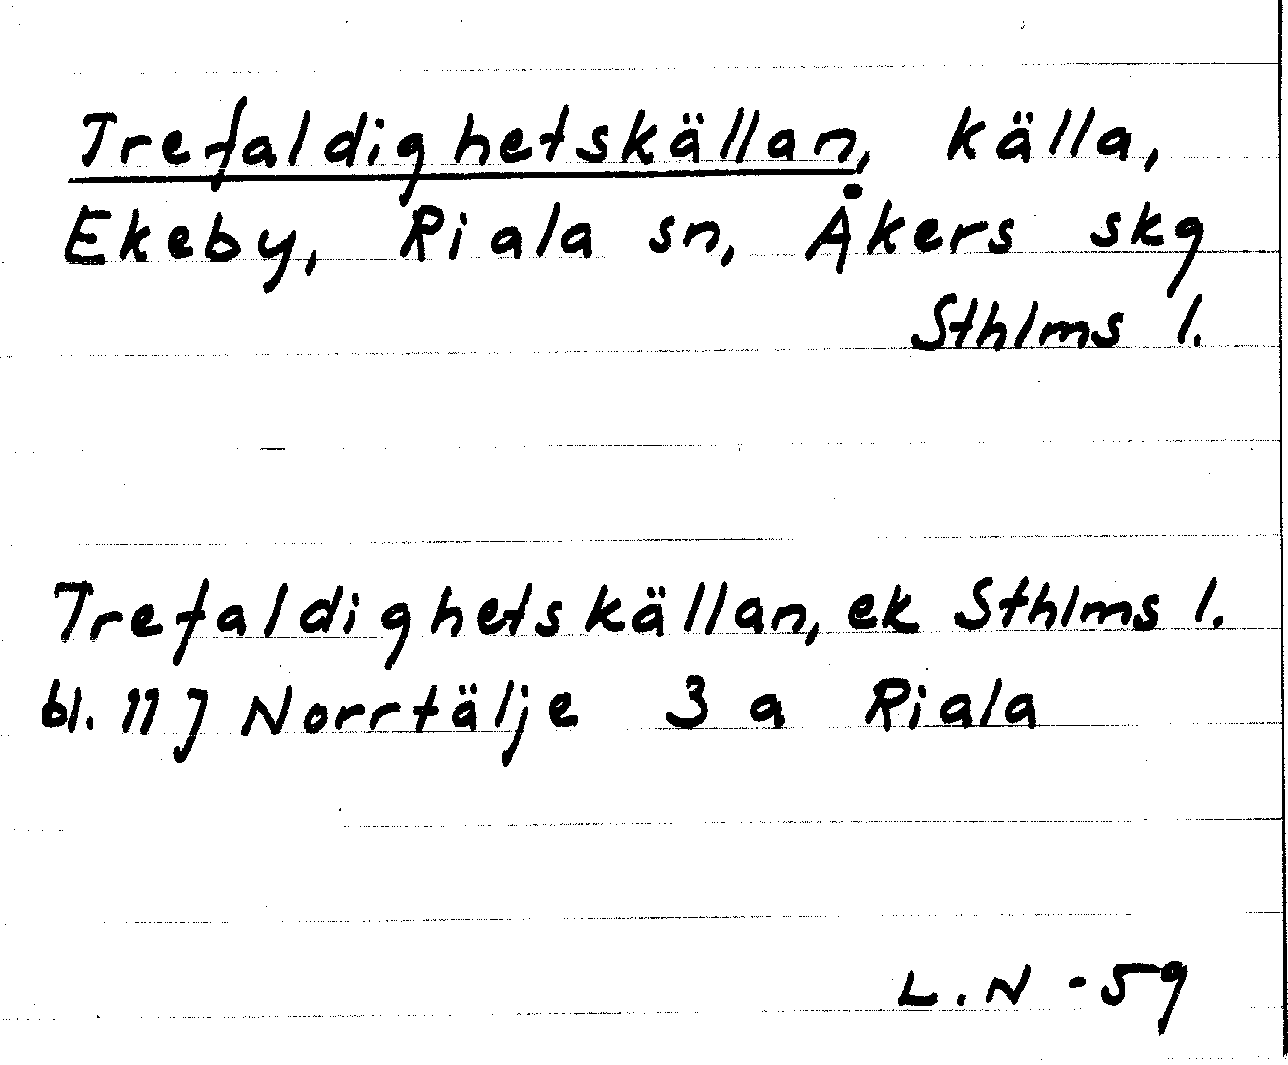 Trefaldighetskällan, källa,
Ekeby, Riala sn, Åkers skg
Sthlms l.
Trefaldighetskällan, ek Sthlms l.
bl. 11 J Norrtälje 3 a Riala
L.N -59